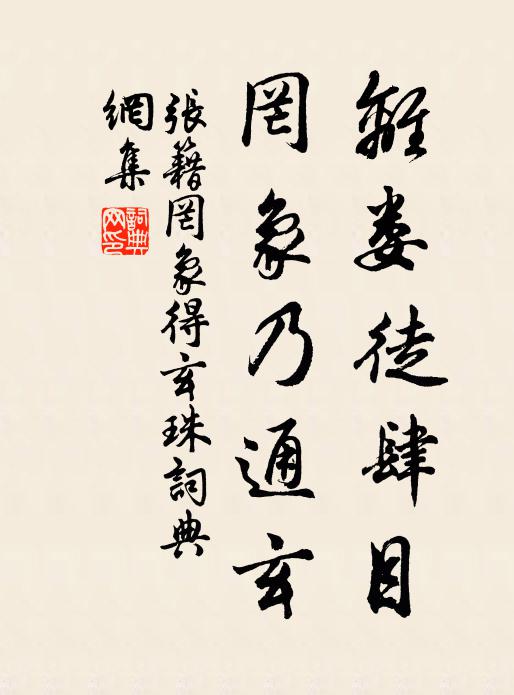 離婁徒肆目
罔象乃通玄
張籍罔象得玄珠詞典
網集
詞典網印